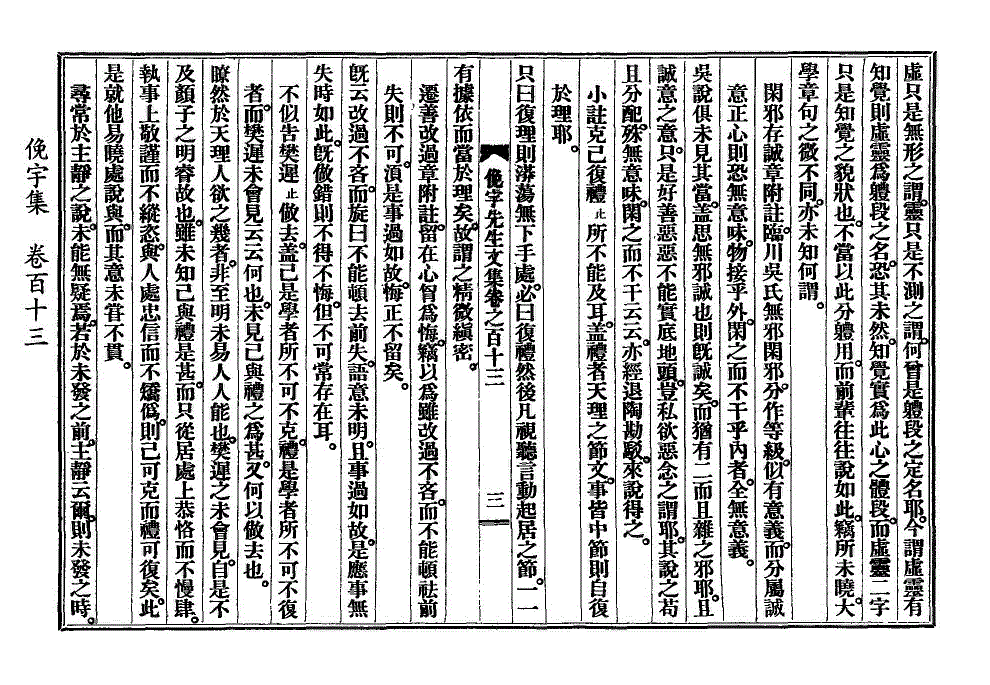 虛只是無形之謂靈只是不測之謂何曾是軆段之定名耶今謂虛靈有
知覺則虛靈爲軆段之名恐其未然知覺實爲此心之體段而虛靈二字
只是知覺之貌狀也不當以此分軆用而前輩往往說如此竊所未曉大
學章句之微不同亦未知何謂
閑邪存誠章附註臨川吳氏無邪閑邪分作等級似有意義而分屬誠
意正心則恐無意味物接乎外閑之而不干乎內者全無意義
吳說俱未見其當盖思無邪誠也則旣誠矣而猶有二而且雜之邪耶且
誠意之意只是好善惡惡不能實底地頭豈私欲惡念之謂耶其說之苟
且分配殊無意味閑之而不干云云亦經退陶勘駁來說得之
小註克己復禮止所不能及耳盖禮者天理之節文事皆中節則自復
於理耶
只曰復理則漭蕩無下手處必曰復禮然後凡視聽言動起居之節一一
俛宇先生文集卷之百十三
三
有據依而當於理矣故謂之精微縝密
遷善改過章附註留在心胷爲悔竊以爲雖改過不吝而不能頓祛前
失則不可湏是事過如故悔正不留矣
旣云改過不吝而旋曰不能頓去前失語意未明且事過如故是應事無
失時如此旣做錯則不得不悔但不可常存在耳
不似告樊遲止做去盖己是學者所不可不克禮是學者所不可不復
者而樊遲未會見云云何也未見己與禮之爲甚又何以做去也
瞭然於天理人欲之幾者非至明未易人人能也樊遲之未會見自是不
及顏子之明睿故也雖未知己與禮是甚而只從居處上恭恪而不慢肆
執事上敬謹而不縱恣與人處忠信而不矯僞則己可克而禮可復矣此
是就他易曉處說與而其意未甞不貫
尋常於主靜之說未能無疑焉若於未發之前主靜云爾則未發之時
俛宇集　卷百十三